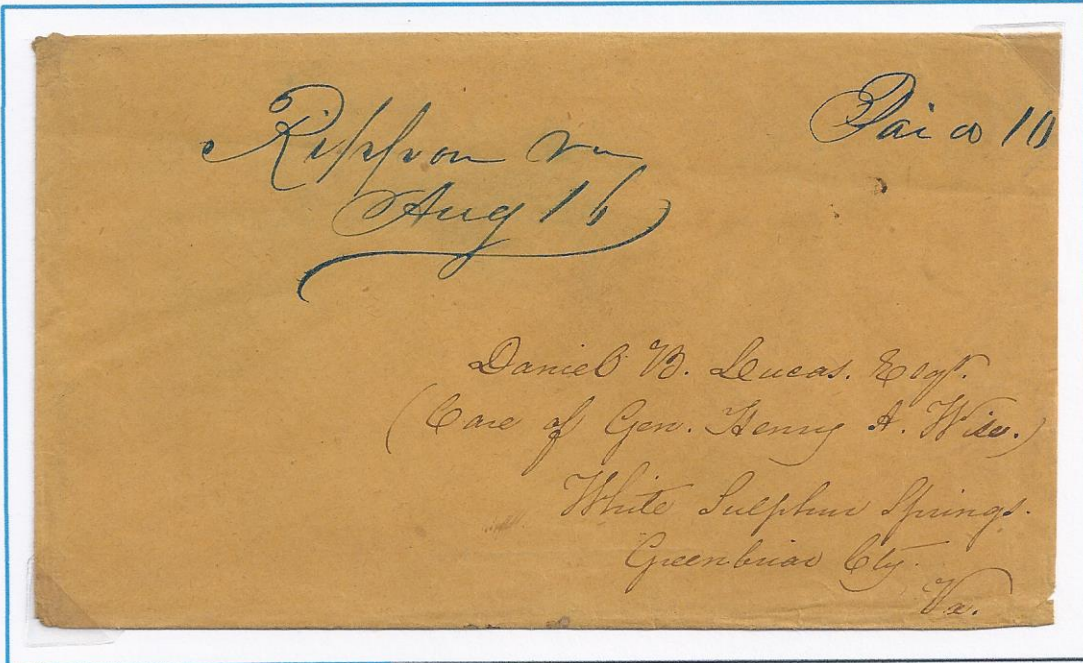 Rippon Va
Aug 16
Paid 10
Daniel B. Lucas. Esqr.
(Care of Gen. Henry A. Wise.)
White Sulphur Springs.
Greenbriar Cty.
Va.